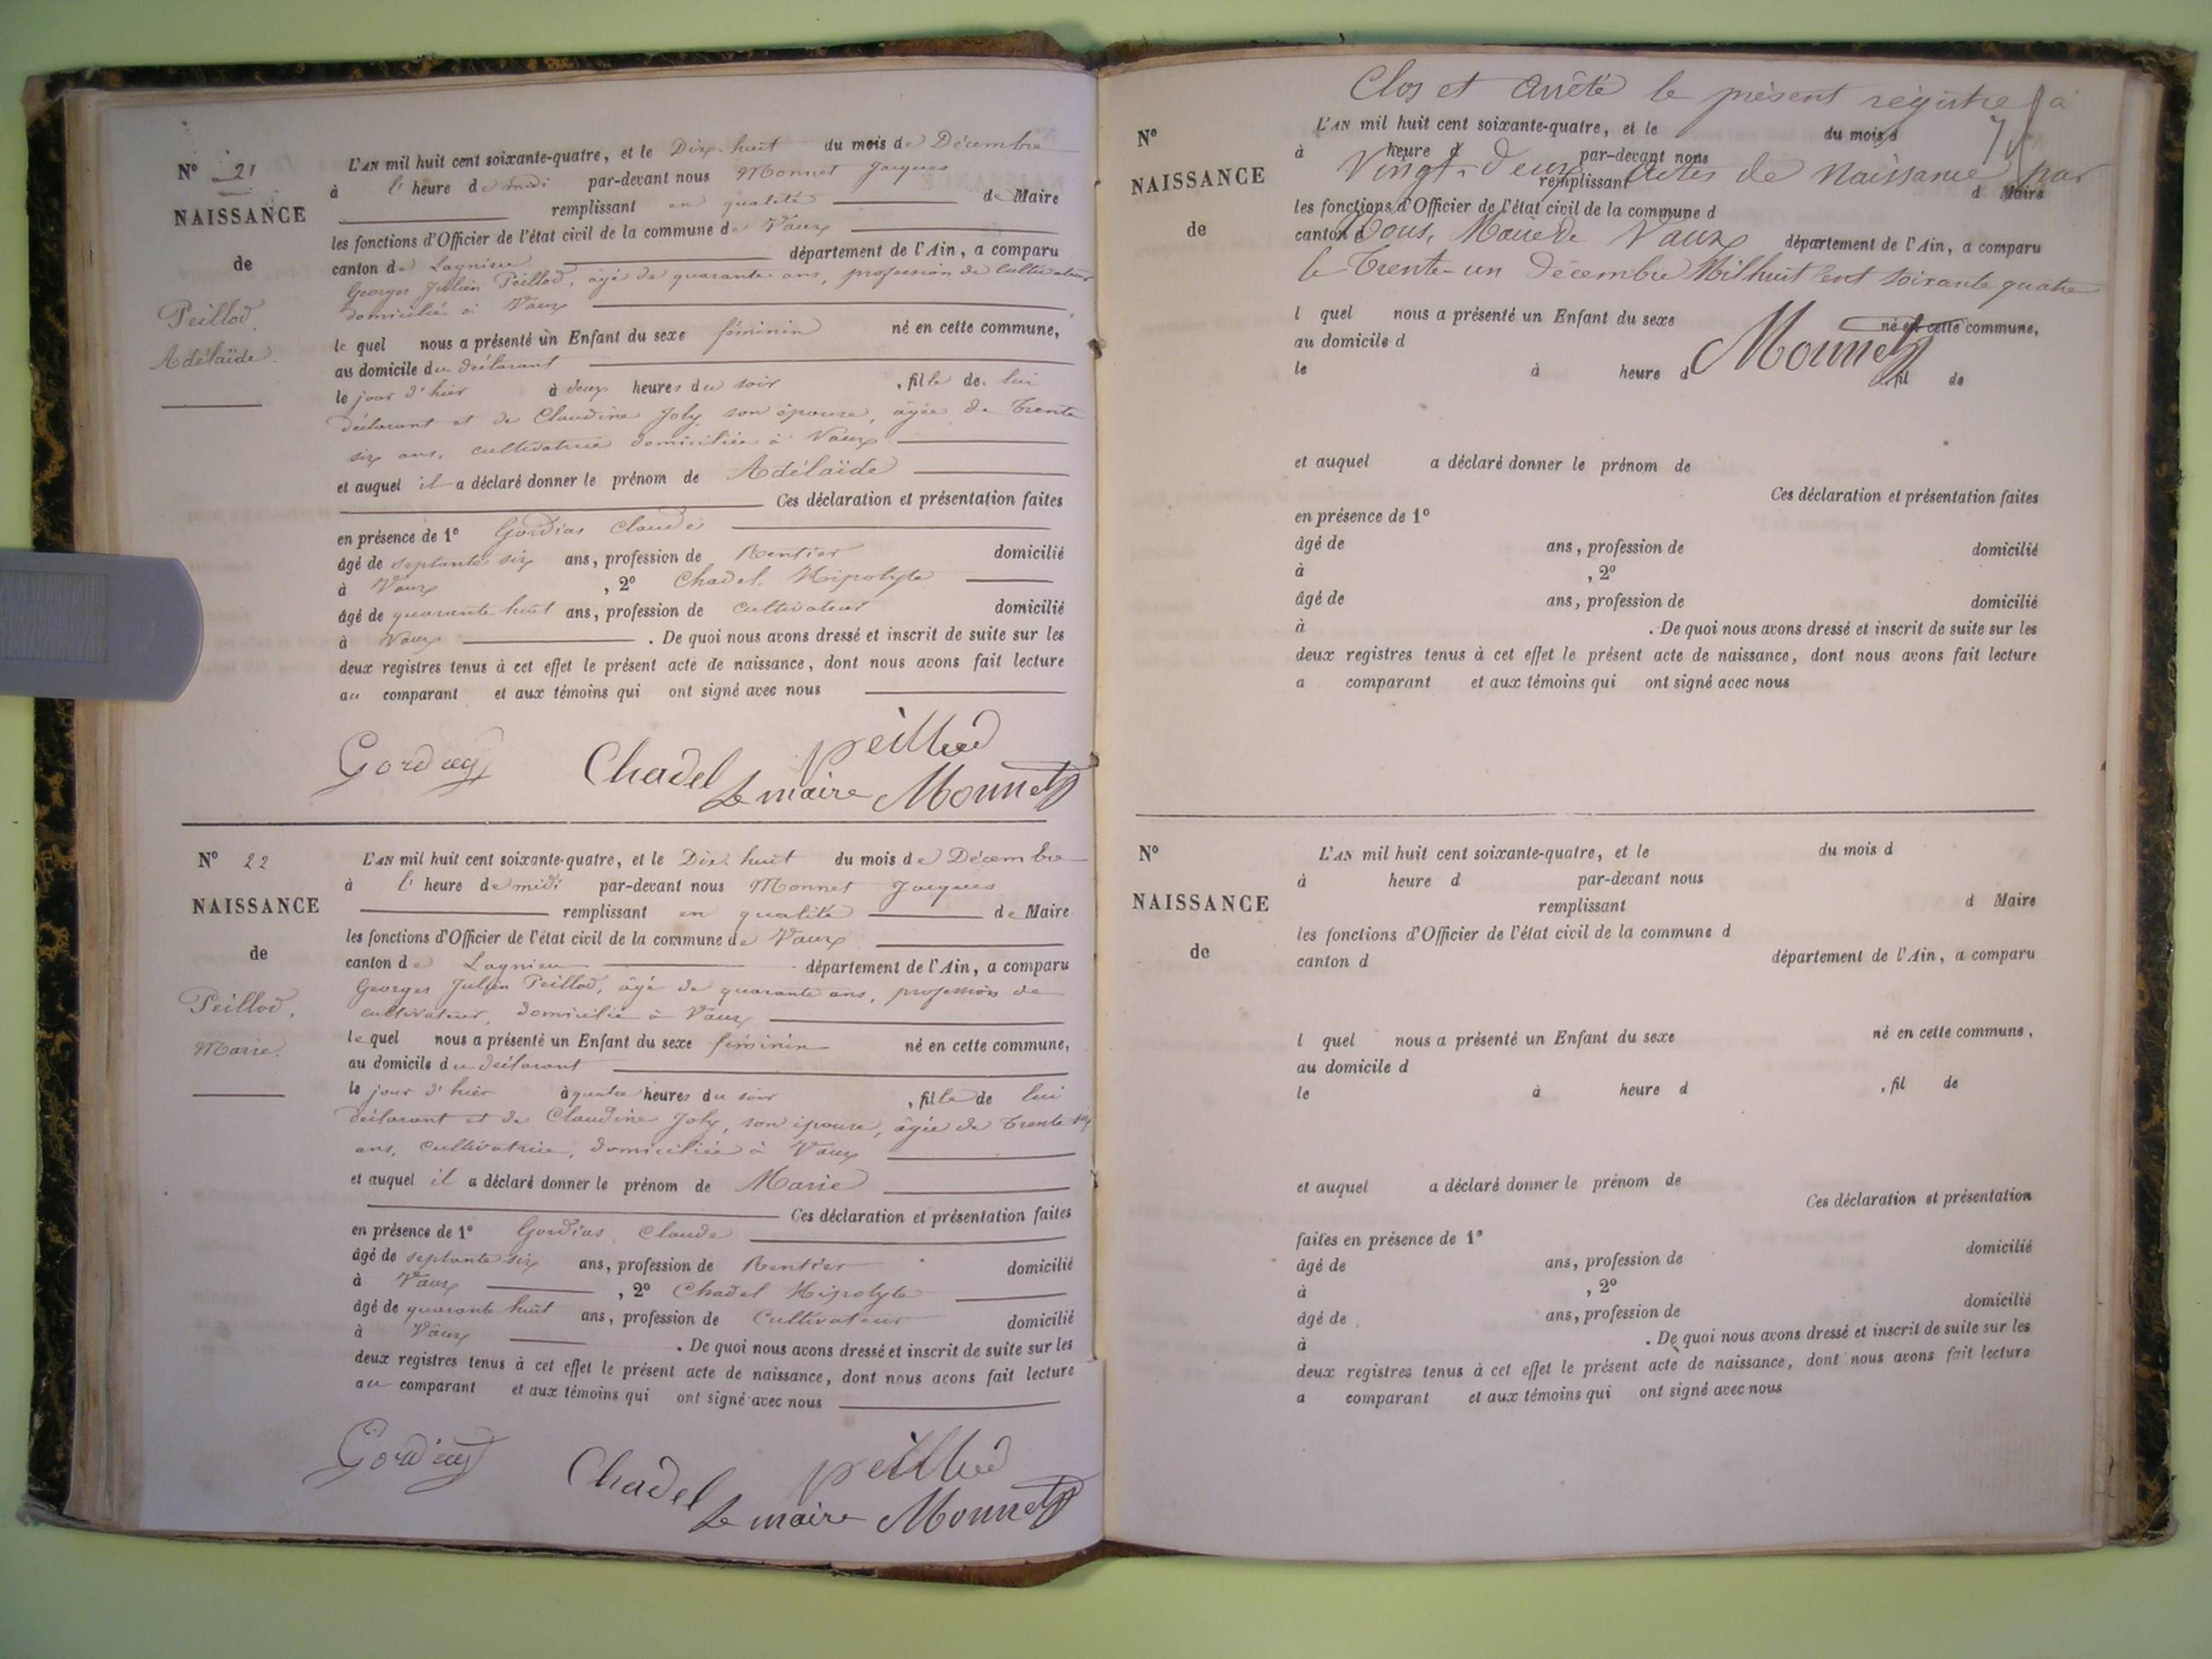 N° 21
NAISSANCE
de
Peillod
Adélaïde
L'AN mil huit cent soixante-quatre, et le Dix-huit du mois de Décembre
à l' heure de midi par-devant nous Monnet Jacques
remplissant en qualité de Maire
les fonctions d'Officier de l'état civil de la commune de Vaux
canton de Lagnieu département de l'Ain, a comparu
Georges Julien Peillod, âgé de quarante ans, profession de cultivateur
domicilié à Vaux
le quel nous a présenté un Enfant du sexe féminin né en cette commune,
au domicile du déclarant
le jour d'hier à deux heures du soir , fille de lui
déclarant et de Claudine Joly son épouse, âgée de trente
six ans, cultivatrice domiciliée à Vaux
et auquel il a déclaré donner le prénom de Adélaïde
Ces déclaration et présentation faites
en présence de 1° Gordias Claude
âgé de septante six ans, profession de Rentier domicilié
à Vaux , 2° Chadel Hipolyte
âgé de quarante huit ans, profession de cultivateur domicilié
à Vaux . De quoi nous avons dressé et inscrit de suite sur les
deux registres tenus à cet effet le présent acte de naissance, dont nous avons fait lecture
au comparant et aux témoins qui ont signé avec nous
Gordias Chadel peillod
Le maire Monnet
N° 22
NAISSANCE
de
Peillod.
Marie.
L'AN mil huit cent soixante-quatre, et le Dix-huit du mois de Décembre
à l' heure de midi par-devant nous Monnet Jacques
remplissant en qualité de Maire
les fonctions d'Officier de l'état civil de la commune de Vaux
canton de Lagnieu département de l'Ain, a comparu
Georges Julien Peillod, âgé de quarante ans, profession de
cultivateur, domicilié à Vaux
le quel nous a présenté un Enfant du sexe féminin né en cette commune,
au domicile du déclarant
le jour d'hier à quatre heures du soir , fille de lui
déclarant et de Claudine Joly, son épouse, âgée de trente six
ans, cultivatrice, domiciliée à Vaux
et auquel il a déclaré donner le prénom de Marie
Ces déclaration et présentation faites
en présence de 1° Gordias Claude
âgé de septante six ans, profession de Rentier domicilié
à Vaux , 2° Chadel Hipolyte
âgé de quarante huit ans, profession de Cultivateur domicilié
à Vaux . De quoi nous avons dressé et inscrit de suite sur les
deux registres tenus à cet effet le présent acte de naissance, dont nous avons fait lecture
au comparant et aux témoins qui ont signé avec nous
Gordias Chadel peillod
Le maire Monnet
Clos et arrêté le présent registre à
N°
NAISSANCE
de
L'AN mil huit cent soixante-quatre, et le du mois d
à heure d par-devant nous
Vingt-deux actes de naissance par
remplissant d Maire
les fonctions d'Officier de l'état civil de la commune d
Nous, Maire de Vaux
canton d département de l'Ain, a comparu
le trente-un décembre Mil huit cent soixante quatre
l quel nous a présenté un Enfant du sexe né en cette commune,
au domicile d
Monnet
le à heure d , fil de
et auquel a déclaré donner le prénom de
Ces déclaration et présentation faites
en présence de 1°
âgé de ans, profession de domicilié
à , 2°
âgé de ans, profession de domicilié
à . De quoi nous avons dressé et inscrit de suite sur les
deux registres tenus à cet effet le présent acte de naissance, dont nous avons fait lecture
a comparant et aux témoins qui ont signé avec nous
N°
NAISSANCE
de
L'AN mil huit cent soixante-quatre, et le du mois d
à heure d par-devant nous
remplissant d Maire
les fonctions d'Officier de l'état civil de la commune d
canton d département de l'Ain, a comparu
l quel nous a présenté un Enfant du sexe né en cette commune,
au domicile d
le à heure d , fil de
et auquel a déclaré donner le prénom de
Ces déclaration et présentation
faites en présence de 1°
âgé de ans, profession de domicilié
à , 2°
âgé de ans, profession de domicilié
à . De quoi nous avons dressé et inscrit de suite sur les
deux registres tenus à cet effet le présent acte de naissance, dont nous avons fait lecture
a comparant et aux témoins qui ont signé avec nous